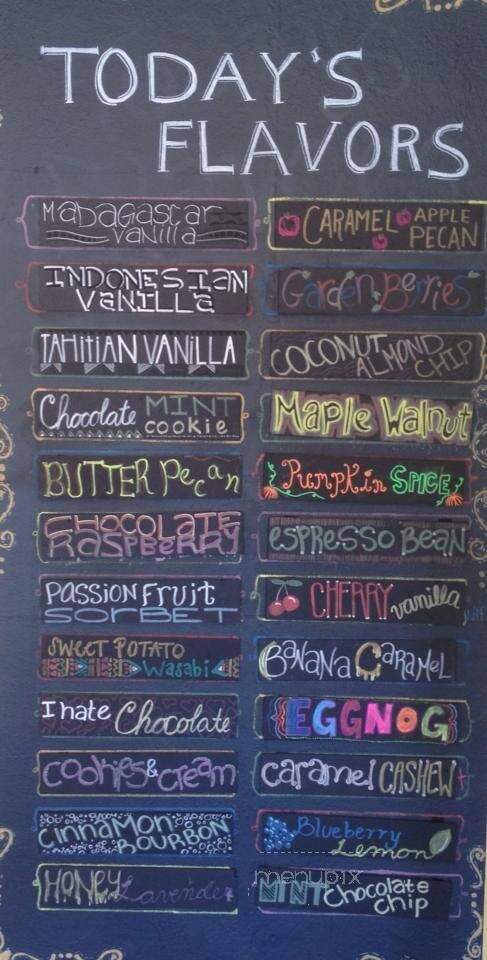 TODAY'S
FLAVORS
Madagascar
vanilla
INDONESIAN
VANILLA
TAHITIAN VANILLA
Chocolate MINT
cookie
BUTTER Pecan
CHOCOLATE
RASPBERRY
PASSION Fruit
SORBET
SWEET POTATO
Wasabi
I hate Chocolate
COOKIES & CREAM
CinnaMon
BOURBON
HONEY Lavender
CARAMEL APPLE
PECAN
Garden Berries
COCONUT ALMOND
CHIP
Maple Walnut
PumpKin SPICE
eSPReSSO BeaN
CHERRY vanilla
BaNaNa CaRaMeL
EGGNOG
caramel CASHEW
Blueberry
Lemon
MINT Chocolate
chip
menupix